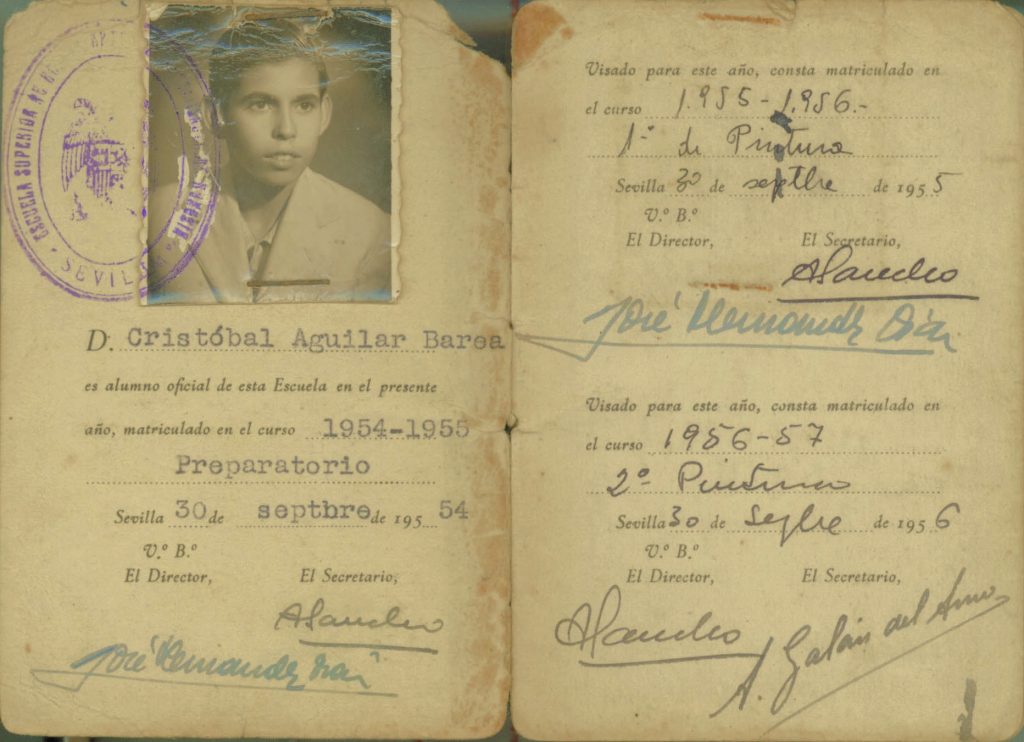 ESCUELA SUPERIOR DE
SEVILLA
D. Cristóbal Aguilar Barea
es alumno oficial de esta Escuela en el presente
año, matriculado en el curso 1954-1955
Preparatorio
Sevilla 30 de septbre de 195 54
V.º B.º
El Director, El Secretario,
ASancho
José Hernandez Diaz
Visado para este año, consta matriculado en
el curso 1.955-1.956.-
1º de Pintura
Sevilla 30 de septbre de 1955
V.º B.º
El Director, El Secretario,
ASancho
José Hernandez Diaz
Visado para este año, consta matriculado en
el curso 1956-57
2º Pintura
Sevilla 30 de Sepbre de 1956
V.º B.º
El Director, El Secretario,
ASancho A. Galán del Amo